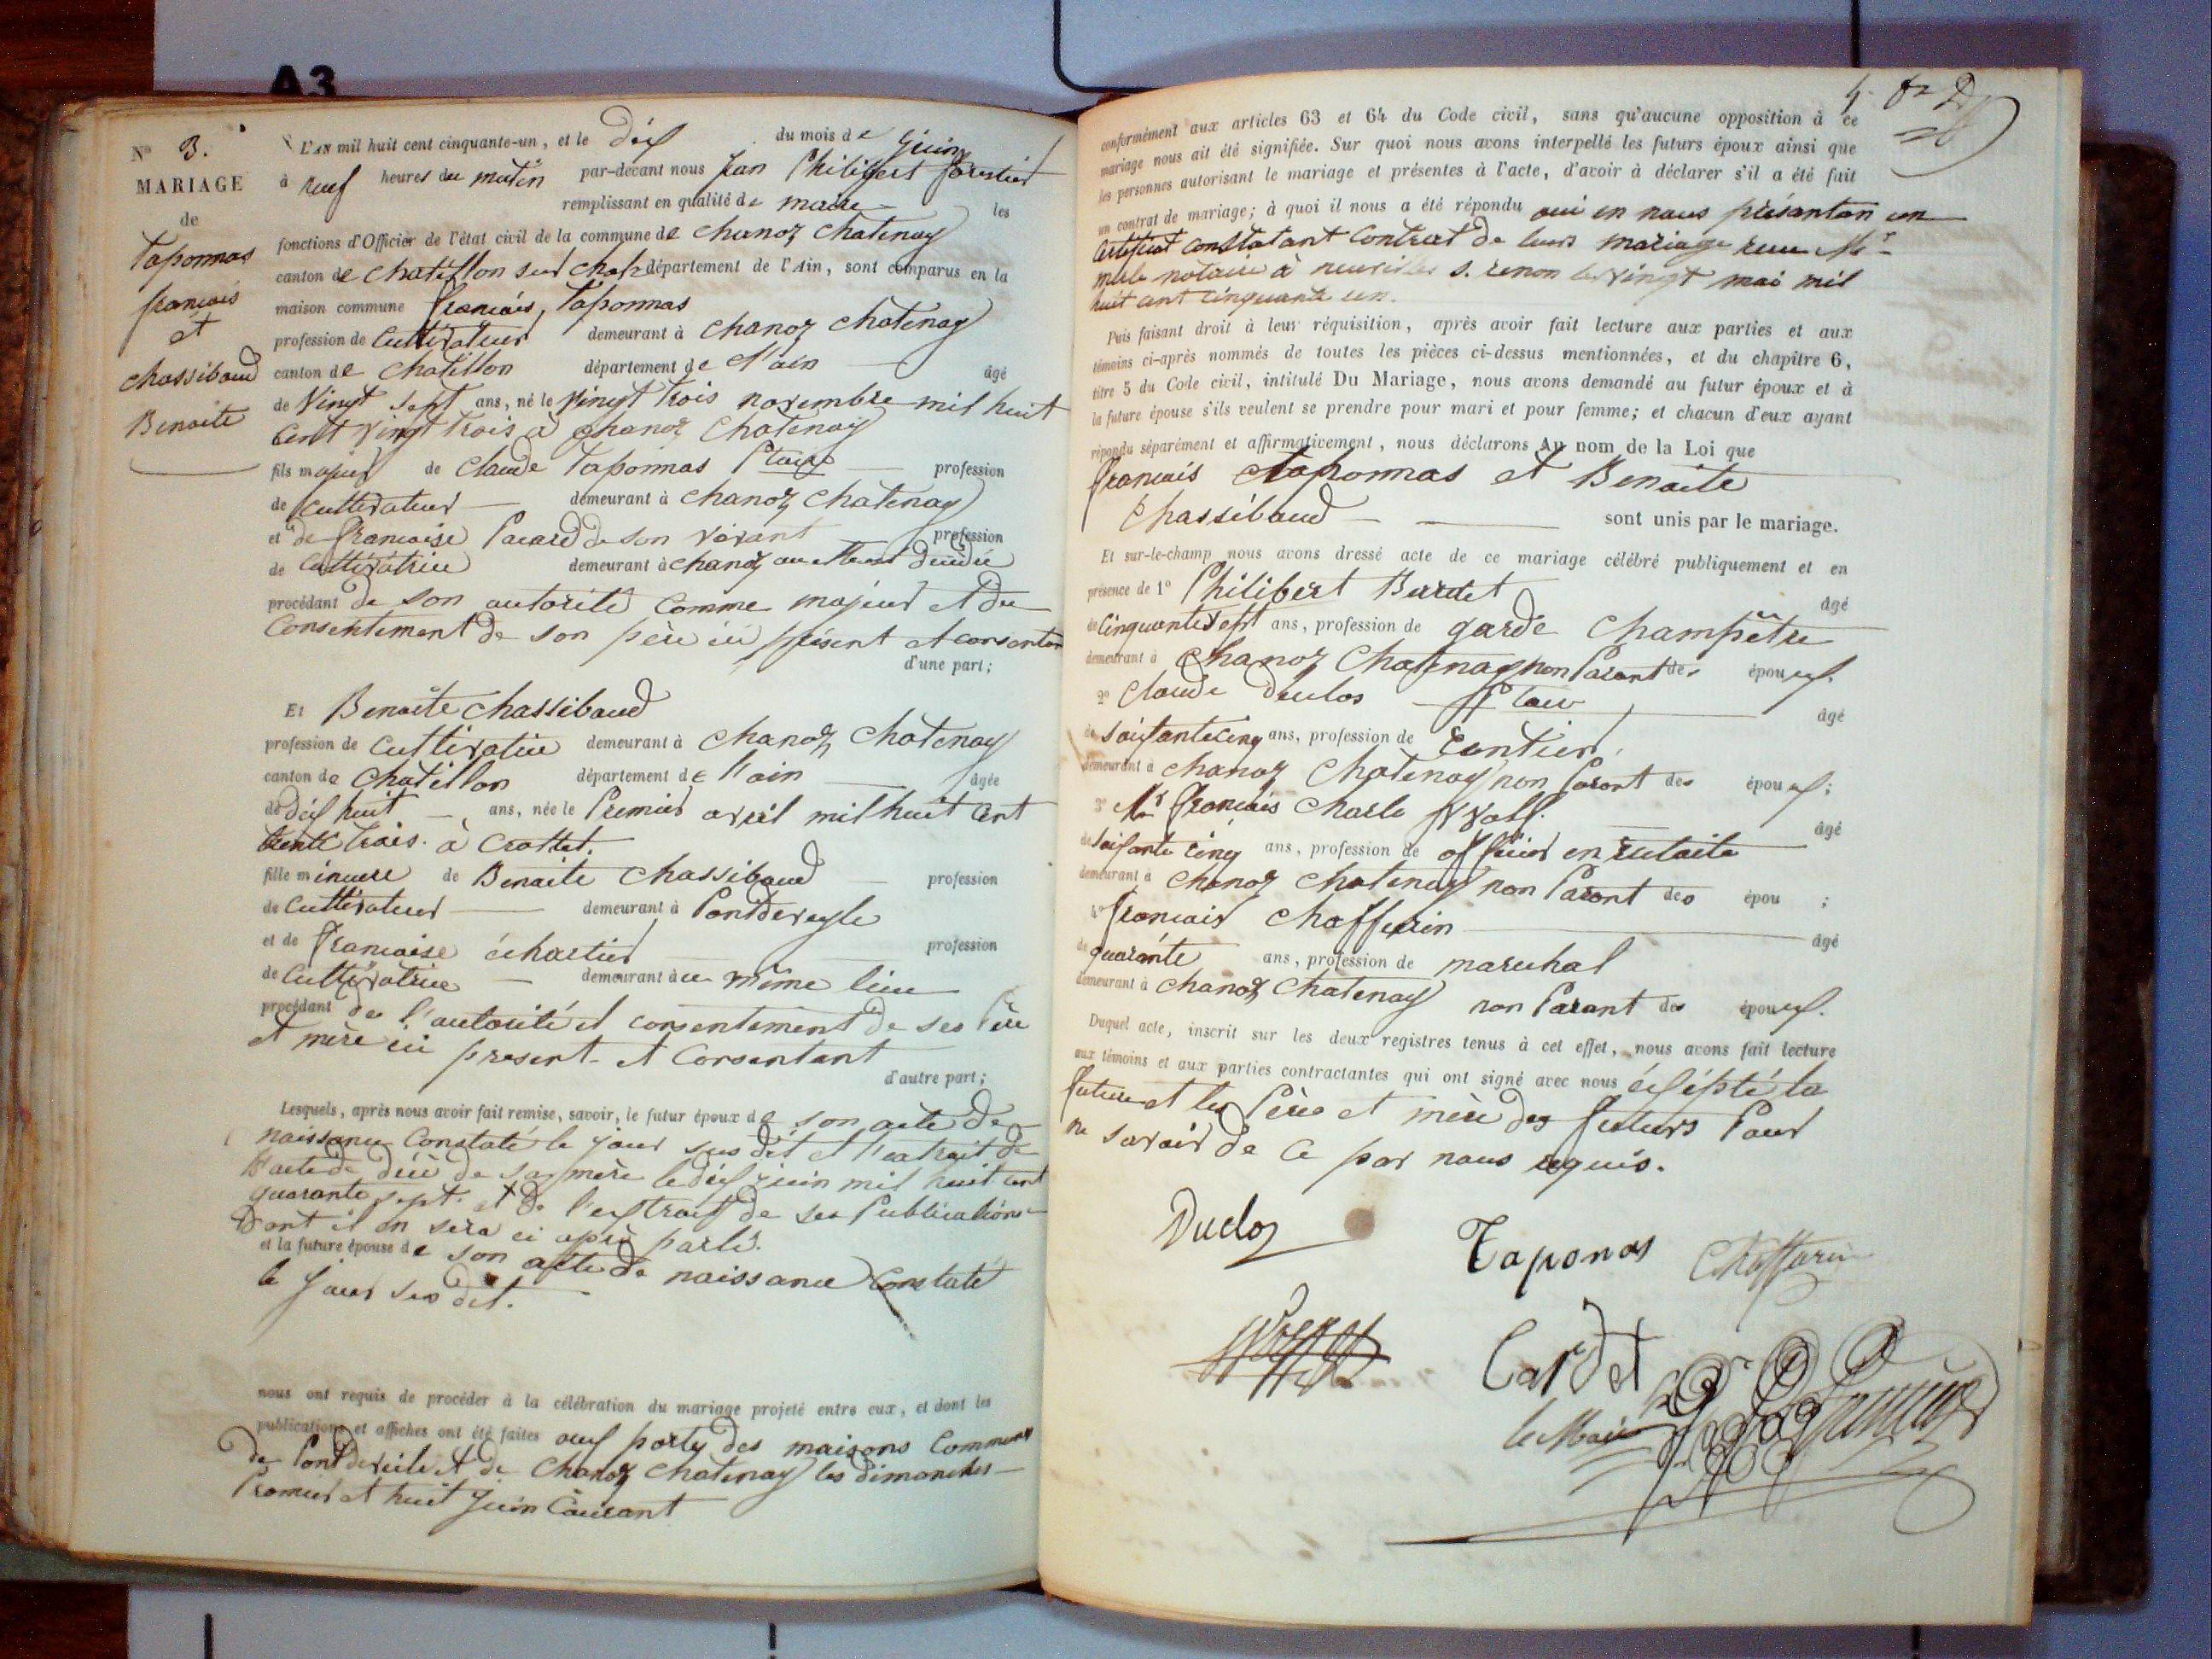 A3
N° 3.
MARIAGE
de
Taponnas
francois
et
chassibaud
Benoite
L'AN mil huit cent cinquante-un, et le dix du mois de Juin
à neuf heures du matin par-devant nous Jean Philibert
remplissant en qualité de maire les
fonctions d'Officier de l'état civil de la commune de chanoz chatenay
canton de chatillon sur chal: département de l'Ain, sont comparus en la
maison commune francois, Taponnas
profession de Cultivateur demeurant à chanoz chatenay
canton de chatillon département de l'ain âgé
de Vingt sept ans, né le Vingt trois novembre mil huit
Cent vingt trois à chanoz Chatenay
fils majeur de Claude Taponnas profession
de Cultivateur demeurant à chanoz chatenay
et de francoise Pacard de son vivant profession
de Cultivatrice demeurant à chanoz
procédant de son autorité Comme majeur et du
Consentement de son père ici présent et consentan
d'une part;
Et Benoite chassibaud
profession de Cultivatrice demeurant à chanoz chatenay
canton de chatillon département de l'ain âgée
de dix huit ans, née le Premier avril mil huit cent
trente trois. à Crottet.
fille mineure de Benoite chassibaud profession
de Cultivateur demeurant à Pontdeveyle
et de francoise échartier profession
de Cultivatrice demeurant à ce même lieu
procédant de l'autorité et consentement de ses Père
et mère ici present et Consentant
d'autre part;
Lesquels, après nous avoir fait remise, savoir, le futur époux de son acte de
naissance Constaté le jour sus dit et l'extrait de
l'acte de décè de sa mère le dix juin mil huit cent
quarante sept. et de l'extrait de ses Publications
Dont il en sera ci après parlé.
et la future épouse de son acte de naissance Constaté
le jour sus dit.
nous ont requis de procéder à la célébration du mariage projeté entre eux, et dont les
publications et affiches ont été faites aux porte des maisons Commune
de Pont de veile et de Chanoz chatenay les dimanches
Premier et huit Juin Courant
conformément aux articles 63 et 64 du Code civil, sans qu'aucune opposition à ce
mariage nous ait été signifiée. Sur quoi nous avons interpellé les futurs époux ainsi que
les personnes autorisant le mariage et présentes à l'acte, d'avoir à déclarer s'il a été fait
un contrat de mariage; à quoi il nous a été répondu oui en nous présentan un
Certificat constatant Contrat de leurs mariage reçu Mr
notaire à s. renon le vingt mai mil
huit cent cinquante un.
Puis faisant droit à leur réquisition, après avoir fait lecture aux parties et aux
témoins ci-après nommés de toutes les pièces ci-dessus mentionnées, et du chapitre 6,
titre 5 du Code civil, intitulé Du Mariage, nous avons demandé au futur époux et à
la future épouse s'ils veulent se prendre pour mari et pour femme; et chacun d'eux ayant
répondu séparément et affirmativement, nous déclarons Au nom de la Loi que
francois Taponnas et Benoite
Chassibaud sont unis par le mariage.
Et sur-le-champ nous avons dressé acte de ce mariage célébré publiquement et en
présence de 1° Philibert Bardet âgé
de Cinquante sept ans, profession de garde Champêtre
demeurant à Chanoz Chatenay non Parant des époux.
2° Claude Duclos âgé
de soixante cinq ans, profession de rentier,
demeurant à chanoz Chatenay non Parant des époux;
3° Mr francois Charle âgé
de soixante cinq ans, profession de officier en retraite
demeurant à Chanoz Chatenay non Parant des épou ;
4° francois Chaffurin âgé
de quarante ans, profession de marechal
demeurant à chanoz Chatenay non Parant des époux.
Duquel acte, inscrit sur les deux registres tenus à cet effet, nous avons fait lecture
aux témoins et aux parties contractantes qui ont signé avec nous éxépté la
future et les Père et mère des futurs Pour
ne savoir de Ce par nous requis.
Duclos
Taponas Chaffurin
Cardet
le Maire